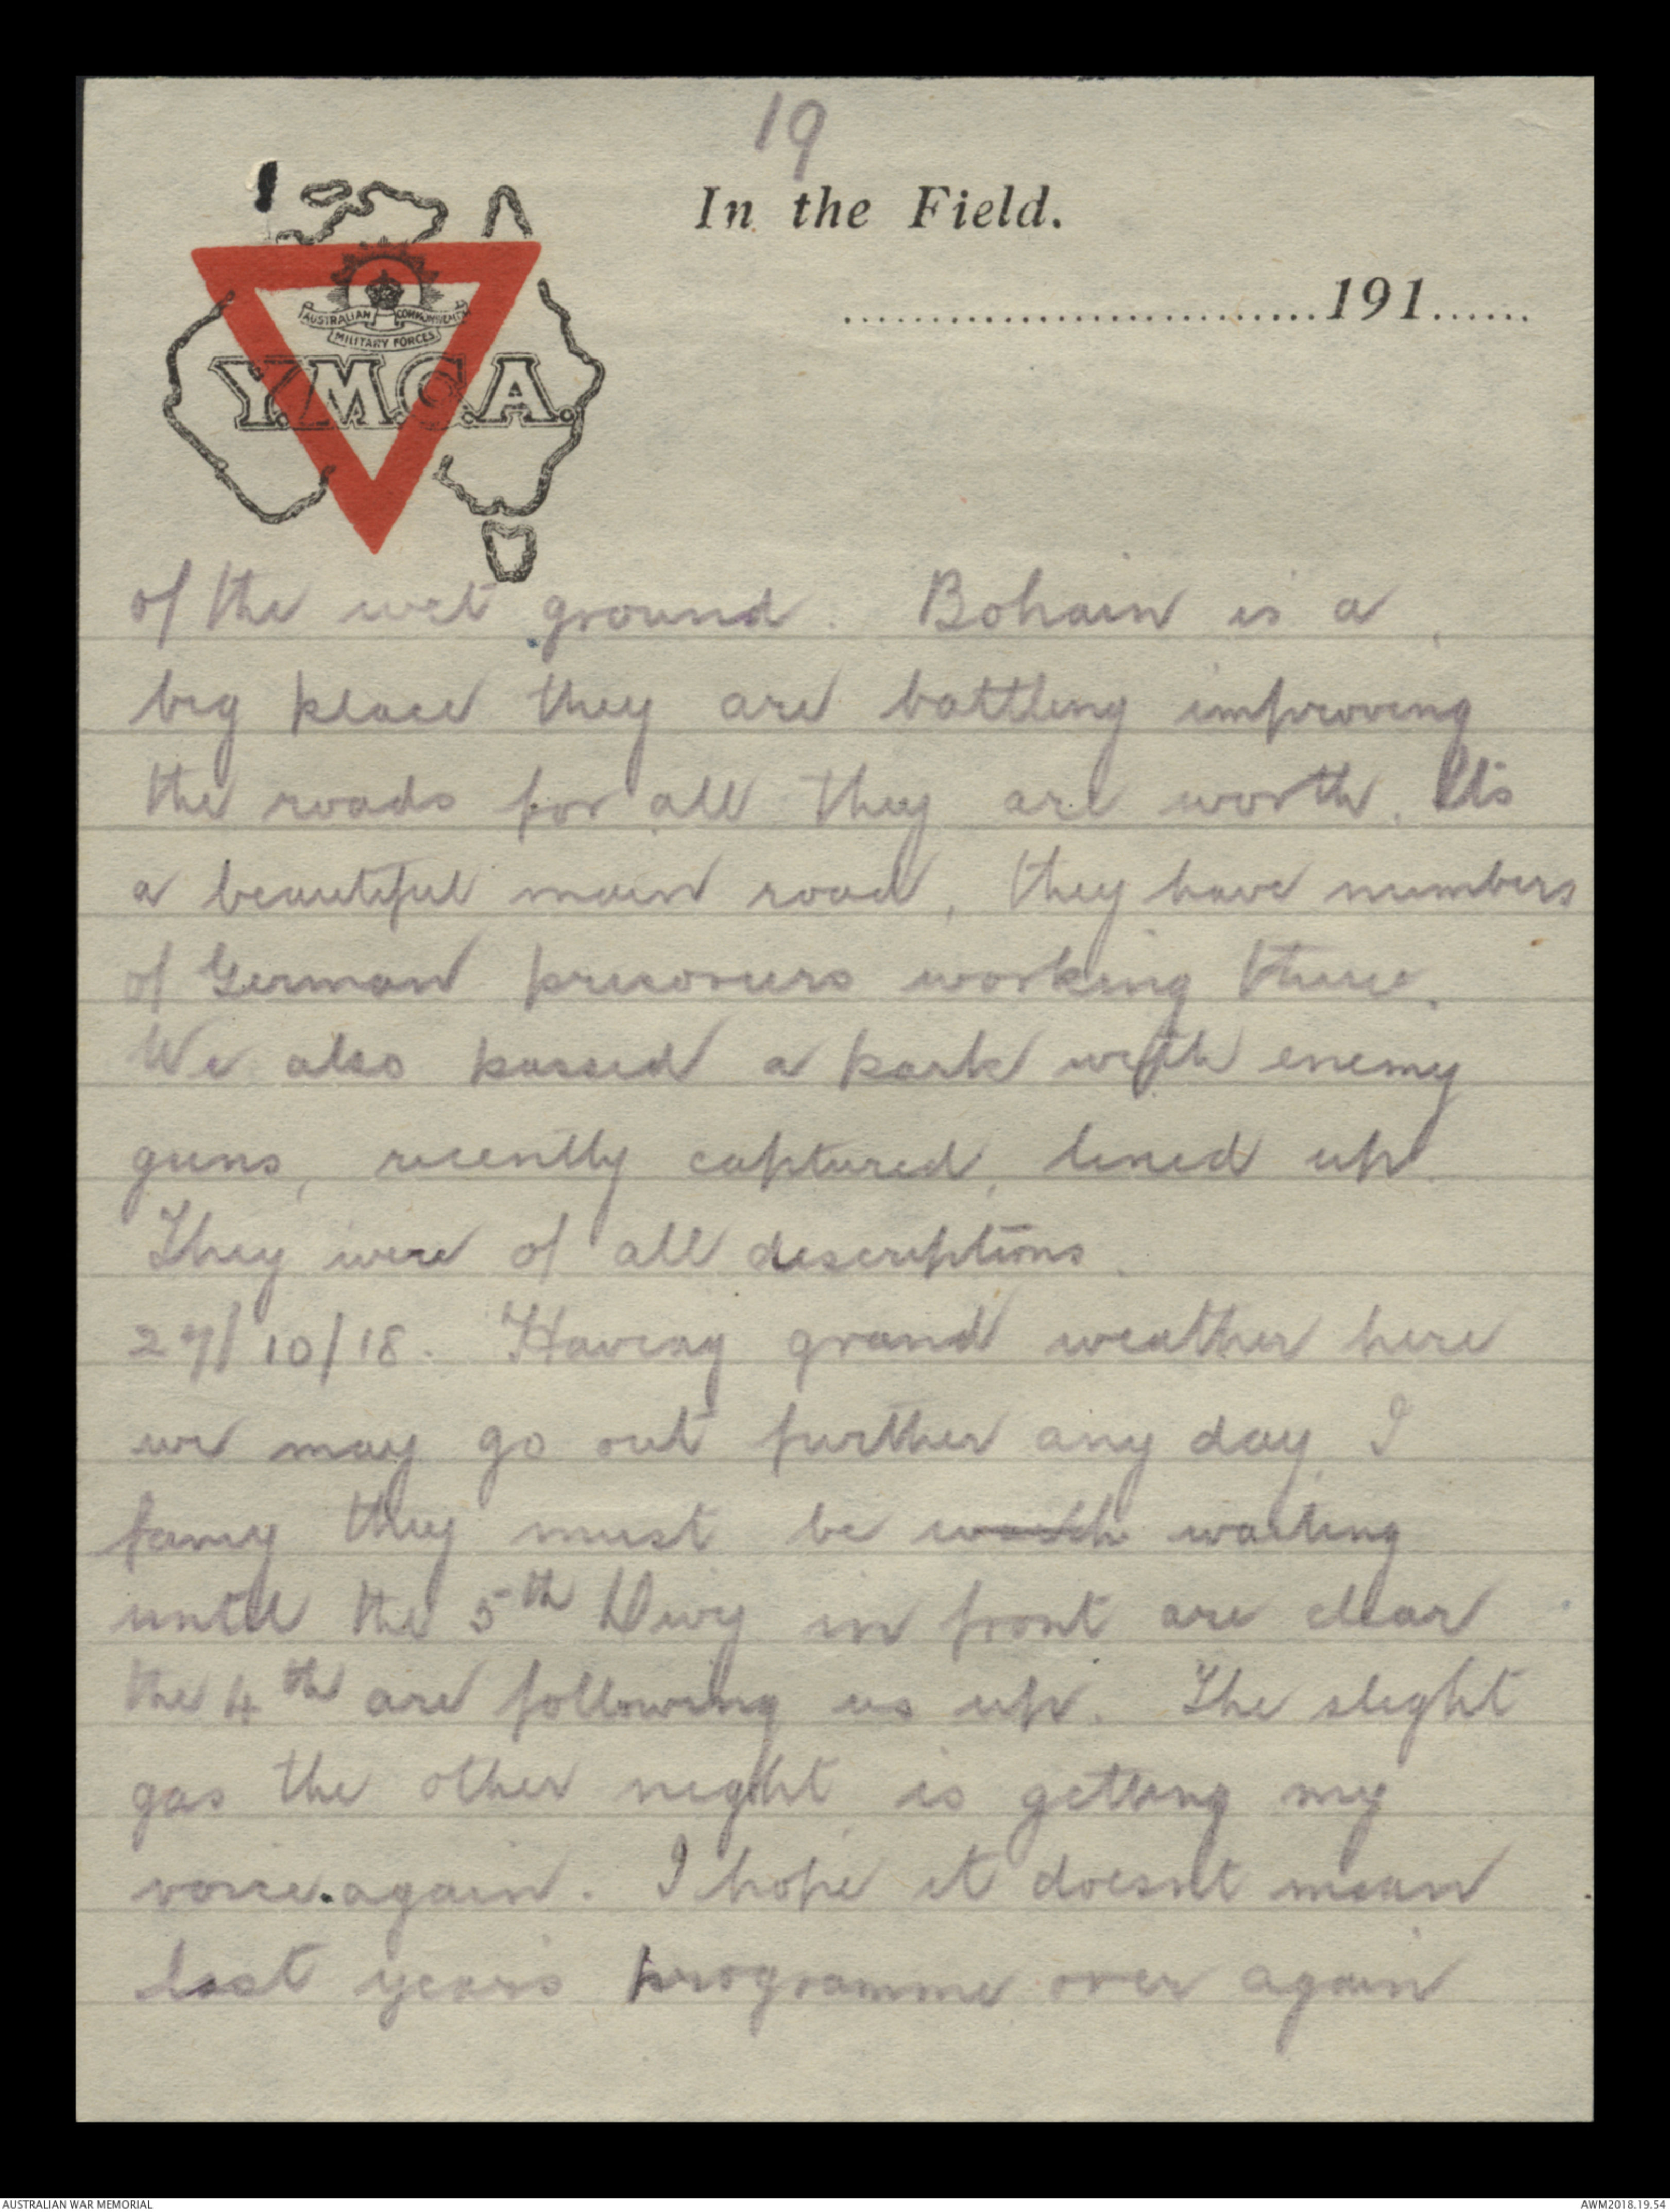 19
In the Field.
AUSTRALIAN COMMONWEALTH
MILITARY FORCES
.............................191......
Y.M.C.A.
of the wet ground. Bohain is a
big place they are battling improving
the roads for all they are worth. Its
a beautiful main road, they have numbers
of German prisoners working there.
We also passed a park with enemy
guns, recently captured, lined up.
They were of all descriptions.
27/10/18. Having grand weather here
we may go out further any day, I
fancy they must be waiting
until the 5th Divvy in front are clear
the 4th are following us up. The slight
gas the other night, is getting my
voice again. I hope it doesn't mean
last years programme over again
AUSTRALIAN WAR MEMORIAL
AWM2018.19.54